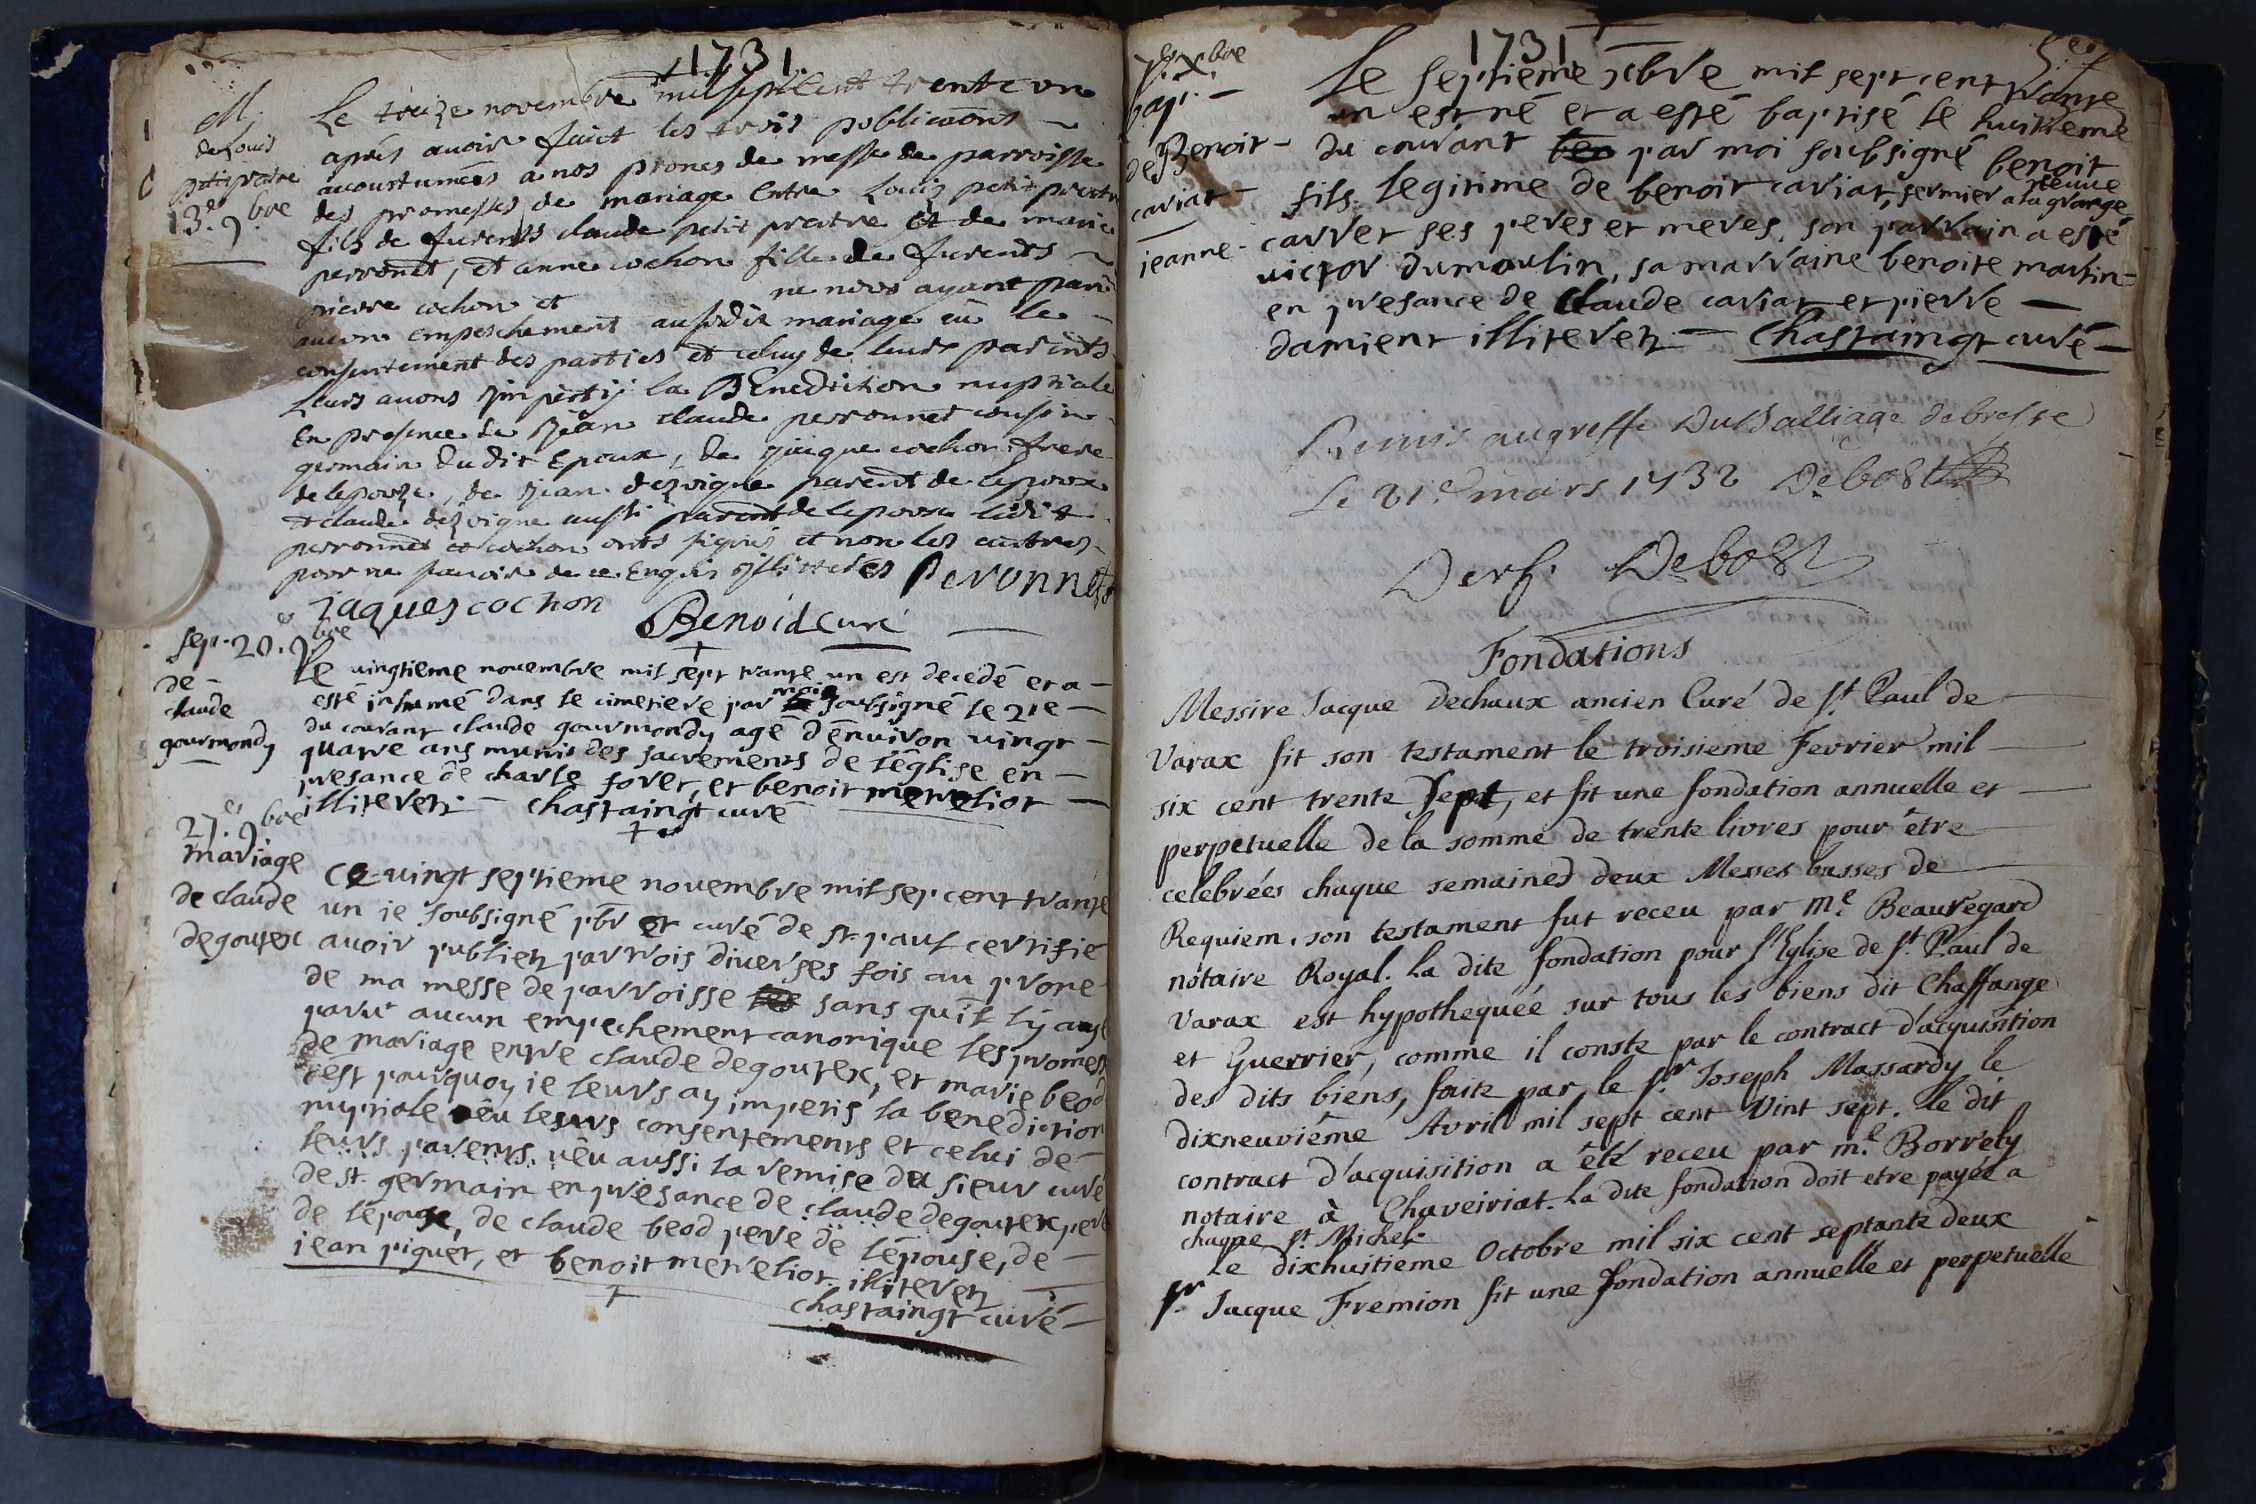 1731.
M.
de Louis
petit pratre
13.e 9.bre
Le treize novembre mil sept cent trente un
aprés avoir faict les trois publicaōns
accoustumées a nos prones de messe de parroisse
des promesses de mariage Entre Louis petit pratre
fils de furents claude petit pratre et de marie
perronet, et anne cochon fille de furents
pierre cochon et ne nous ayant paru
aucun empeschement aususdit mariage eü le
consentement des parties et celuy de leurs parents
Leurs avons jmpertij la BEnediction nuptiale
En presence de jean claude peronnet cousin
germain dudit Epoux, de jacque cochon frere
de lepouze, de jean dezvigne parent de lepoux
et claude dezvigne aussi parent de lepouse lédit
peronnet et cochon onts signés et non les autres
pour ne sçavoir de ce Enquis jllitterés peronnet
jaques cochon
Benoid Curé
sep. 20.e 9.bre
de
claude
gourmondy
Le vingtieme novembre mil sept trante un est decedé et a
esté inhumé dans le cimetiere par moi soubsigné le 21e
du courant claude gourmondy agé d'environ vingt
quatre ans munis des sacrements de l'église en
presance de charle foret, et benoit metreliot
illiterez. chastaingt curé
27.e 9.bre
mariage
de claude
degoutex
Ce vingt septieme novembre mil sept cent trante
un je soubsigné pbr et curé de st paul certifie
avoir publiez par trois diverses fois au prone
de ma messe de parroisse sans qu'il ly aye
paru aucun empechement canonique les promess
de mariage entre claude degoutex, et marie beod
c'est pourquoy ie leurs ay imperis la benediction
nuptiale vêu leurs consentements et celui de
leurs parents. vêu aussi la remise du sieur curé
de st. germain en presance de claude degoutex pere
de lépoux, de claude beod pere de lépouse, de
jean piguet, et benoit metreliot. illiterez
chastaingt curé
1731
7.e X.bre
bap.
de Benoit
cariat
jeanne
Le septieme xbre mil sept cent trante
un est né et a esté baptisé le huitieme
du courant ben par moi soubsigné benoit
fils legitime de benoit cariat, fermier a la grange neuve
carret ses peres et meres, son parrain a esté
victor dumoulin, sa marraine benoite martin
en presance de claude cariat et pierre
damient illiterez chastaingt curé
Remis au greffe Du Balliage de bresse
Le 21.e mars 1732 Debost
Debost
Fondations
Messire Jacque Dechaux ancien Curé de St. Paul de
Varax fit son testament le troisieme Fevrier mil
six cent trente Sept, et fit une fondation annuelle et
perpetuelle de la somme de trente livres pour être
celebrées chaque semaines deux Messes basses de
Requiem. son testament fut receu par m.e Beauregard
nótaire Royal. La dite fondation pour l'Eglise de St. Paul de
Varax est hypothequée sur tous les biens dit Chaffange
et Guerrier, comme il conste par le contract d'acquisition
des dits biens, faite par le sr. Joseph Massardy le
dixneuviême Avril mil sept cent Vint sept. le dit
contract d'acquisition a été receu par m.e Borrely
notaire à Chaveiriat. La dite fondation doit etre payée a
chaque St. Michel.
Le dixhuitieme Octobre mil six cent septante deux
sr. Jacque Fremion fit une fondation annuelle et perpetuelle